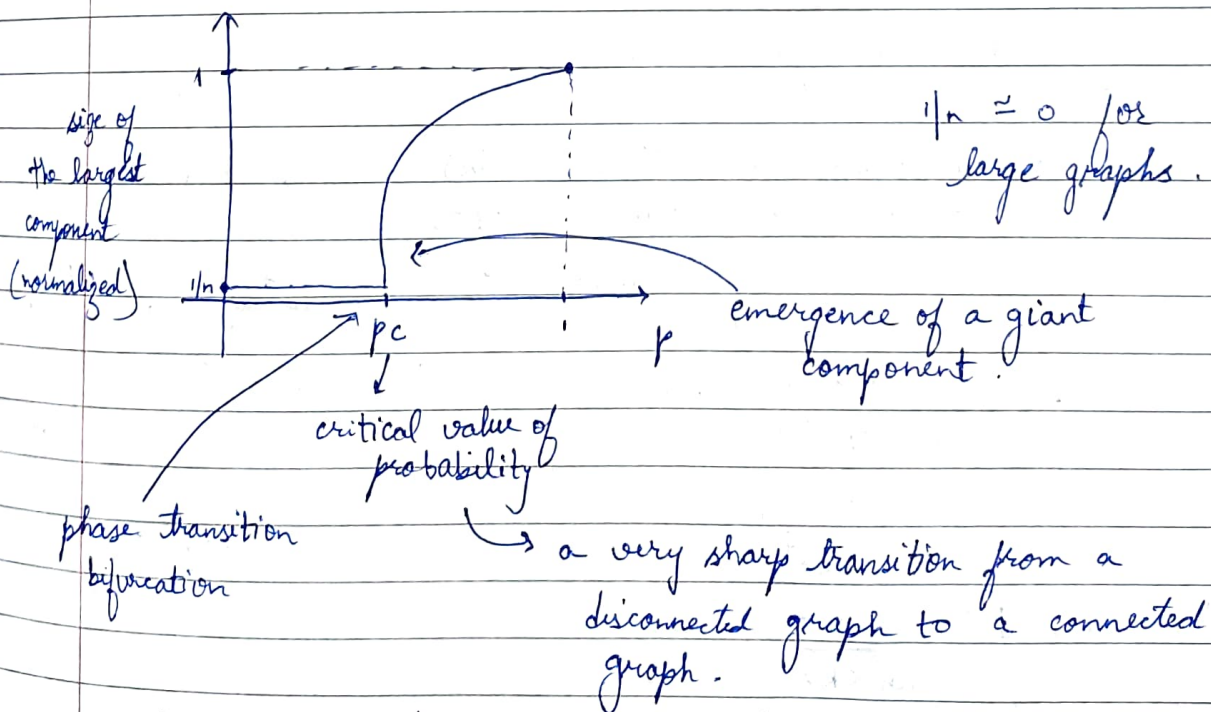 1
size of
the largest
component
(normalized)
1/n
1/n ≃ 0 for
large graphs.
pc
1
p
emergence of a giant
component.
critical value of
probability
phase transition
bifurcation
a very sharp transition from a
disconnected graph to a connected
graph.